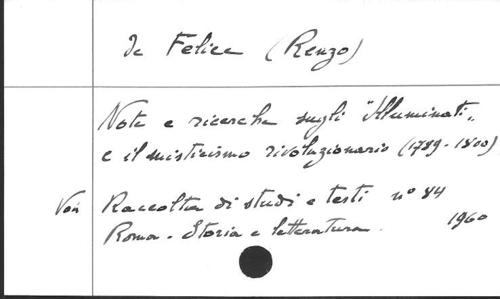 de Felice (Renzo)
Note e ricerche sugli "Illuminati"
e il misticismo rivoluzionario (1789-1800)
Voir Raccolta di studi e testi n° 84
Roma - Storia e letteratura. 1960